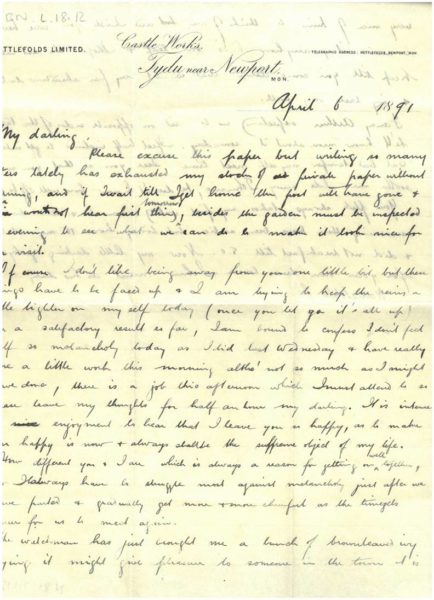 TTLEFOLDS LIMITED.
Castle Works,
TELEGRAPHIC ADDRESS: NETTLEFOLDS, NEWPORT, MON
Tydu near Newport,
MON.
April 6 1891
My darling,
Please excuse this paper but writing so many
ters lately has exhausted my stock of private paper without
ning, and if I wait till I get home the post will have gone &
would not hear first thing tomorrow, besides the garden must be inspected
evening to see what we can do to make it look nice for
visit.
Of course I don't like being away from you one little bit, but these
ings have to be faced up & I am trying to keep the reins a
tle tighter on myself today (once you let go it's all up!)
a satisfactory result so far, I am bound to confess I don't feel
lf so melancholy today as I did last Wednesday & have really
ne a little work this morning altho' not so much as I might
ve done, there is a job this afternoon which I must attend to so
leave my thoughts for half an hour my darling. It is intense
enjoyment to hear that I leave you so happy, as to make
happy is now & always shall be the supreme object of my life.
How different you & I are which is always a reason for getting on well together,
I always have to struggle most against melancholy just after we
ve parted & gradually get more & more cheerful as the time gets
for us to meet again.
he watchman has just brought me a bunch of brown leaved ivy
ying it might give pleasure to someone in the town it is